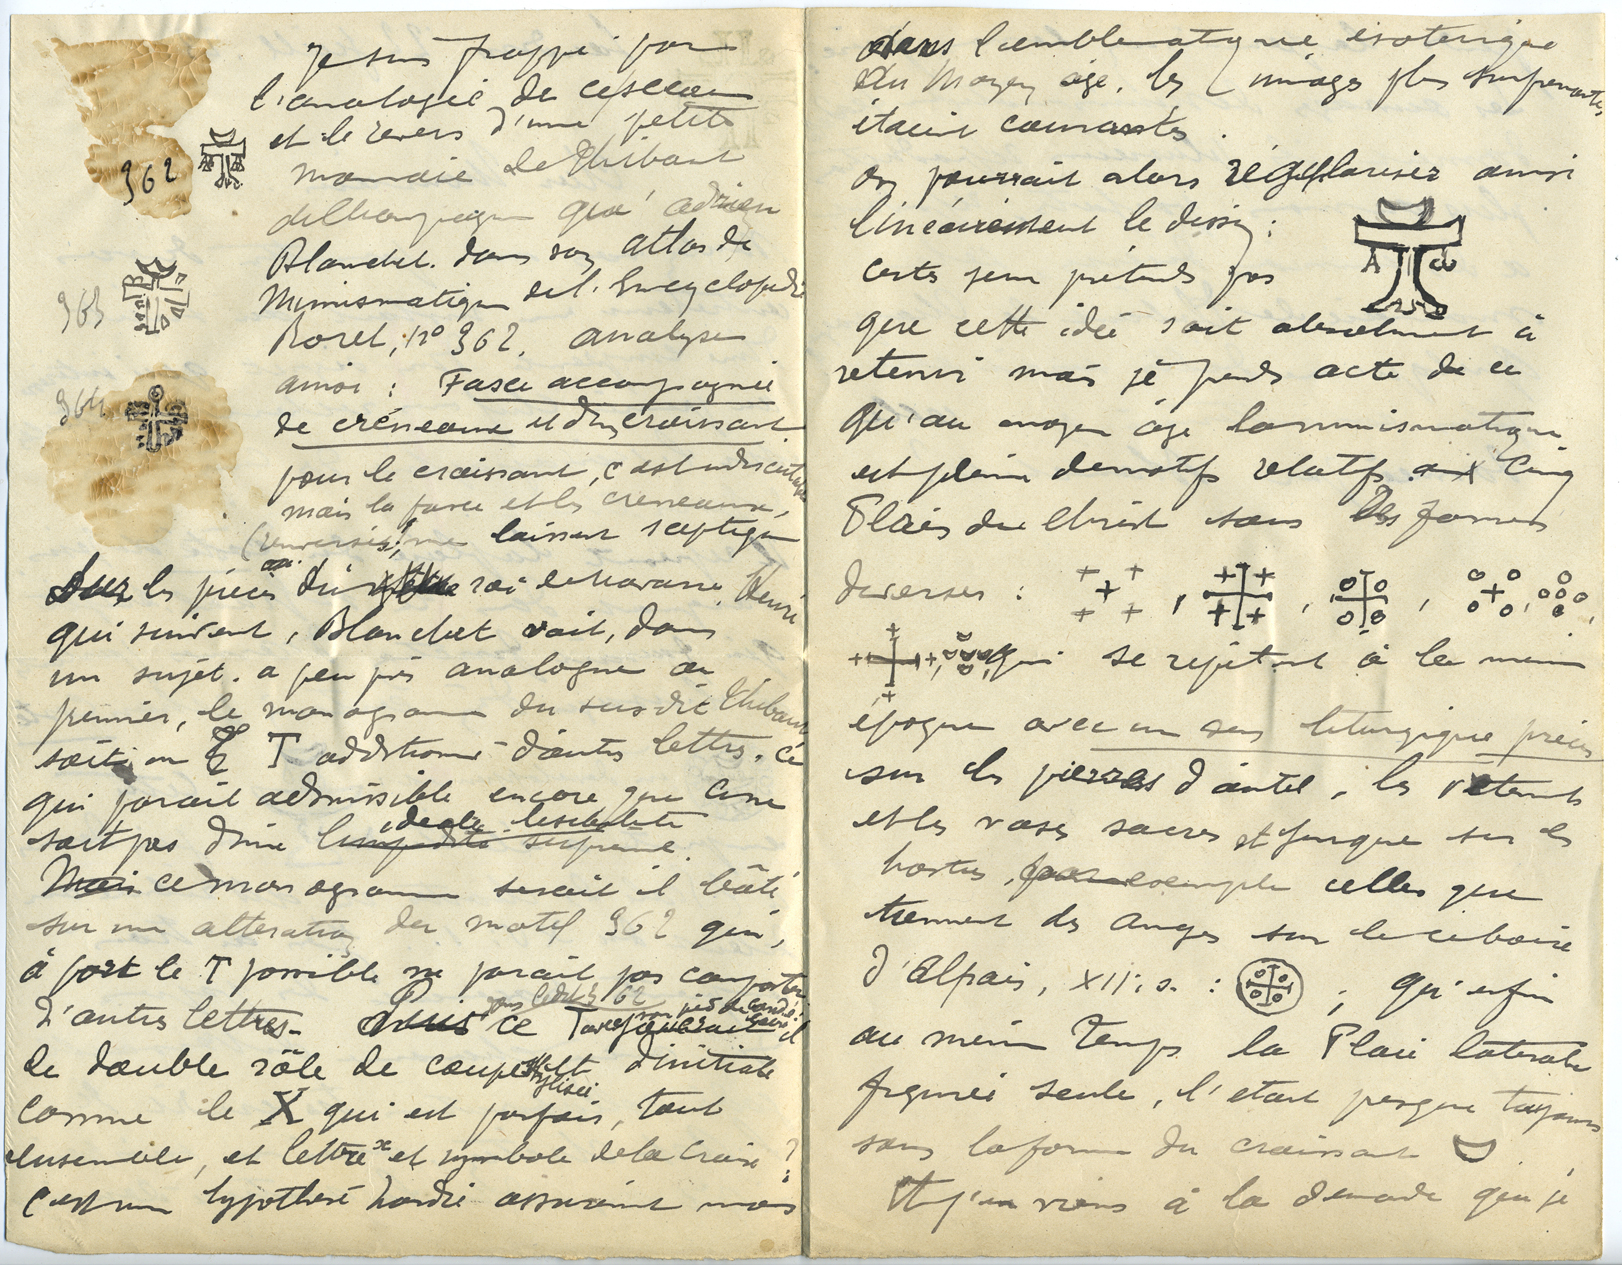 Je suis frappé par
l'analogie de ce sceau
et le revers d'une petite
monnaie de Thibaut
de Champagne qu'Adrien
Blanchet dans son atlas de
Numismatique de l'Encyclopédie
Roret, n° 362, analyse
ainsi : Fasce accompagnée
de créneaux et d'un croissant
pour le croissant, c'est indiscutable
mais la fasce et les créneaux,
(renversés) me laissent sceptique
362
363
364
Sur les pièces du roi de Navarre, Henri
qui suivent, Blanchet voit, dans
un sujet à peu près analogue au
premier, le monogramme du susdit Thibaut
soit un T T additionné d'autres lettres. Ce
qui parait admissible encore que ce ne
soit pas d'une limpidité suprême.
ideale lisibilité
Mais ce monogramme serait il bâti
sur une altération du motif 362 qui,
à part le T possible ne parait pas comporter
d'autres lettres. Puis ce T
sous le dit 362
avec son pied de
jouerait il
le double rôle de coupe et d'initiale
stylisée
comme le X qui est parfois, tout
ensemble, et lettre x et symbole de la Croix ?
C'est une hypothèse hardie assurément mais
dans l'emblématique ésotérique
du Moyen âge, les images plus surprenantes,
étaient courantes.
on pourrait alors régulariser ainsi
linéairement le dessin :
A ω
Certes je ne prétends pas
que cette idée soit absolument à
retenir mais je prends acte de ce
qu'au moyen âge la numismatique
est pleine de motifs relatifs aux Cinq
Plaies du Christ sous des formes
diverses : , , , ,
qui se répètent à la même
époque avec un sens liturgique précis
sur les pierres d'autel, les vêtements
et les vases sacrés et jusque sur les
hosties, par exemple celles que
tiennent des anges sur le ciboire
d'Alpais, XIIe s. : ; qu'enfin
au même temps la Plaie latérale
figurée seule, l'était presque toujours
sous la forme du croissant
Et j'en viens à la demande que je